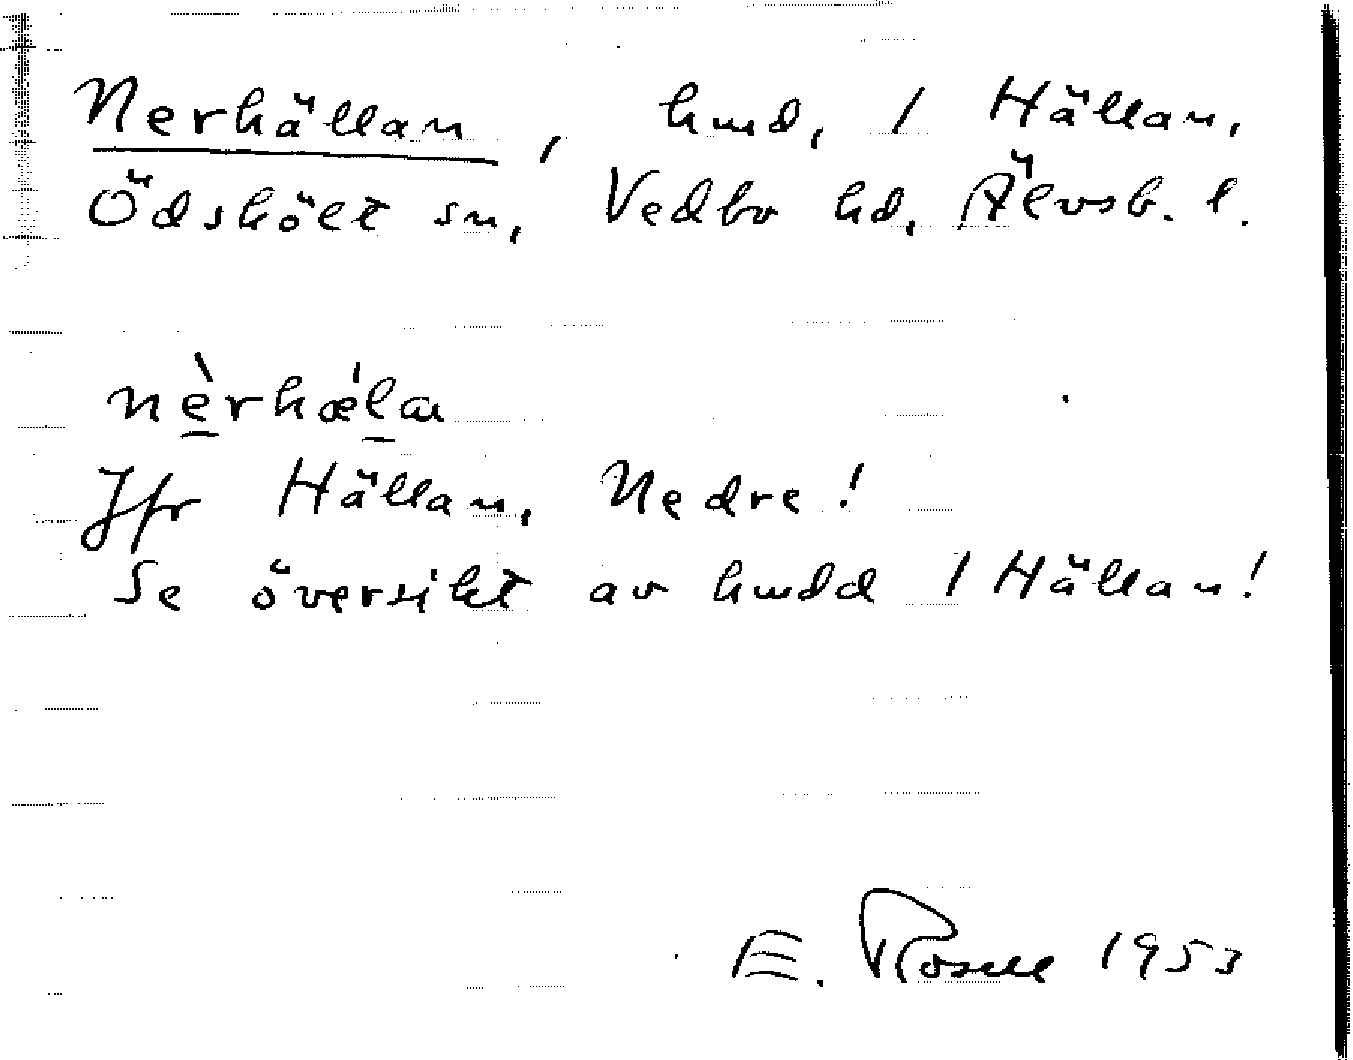 Nerhällan, hmd, 1 Hällan,
Ödskölt sn, Vedbo hd, Älvsb. l.
nèrhæ̀la
Jfr Hällan, Nedre!
Se översikt av hmdd 1 Hällan!
E. Rosell 1953